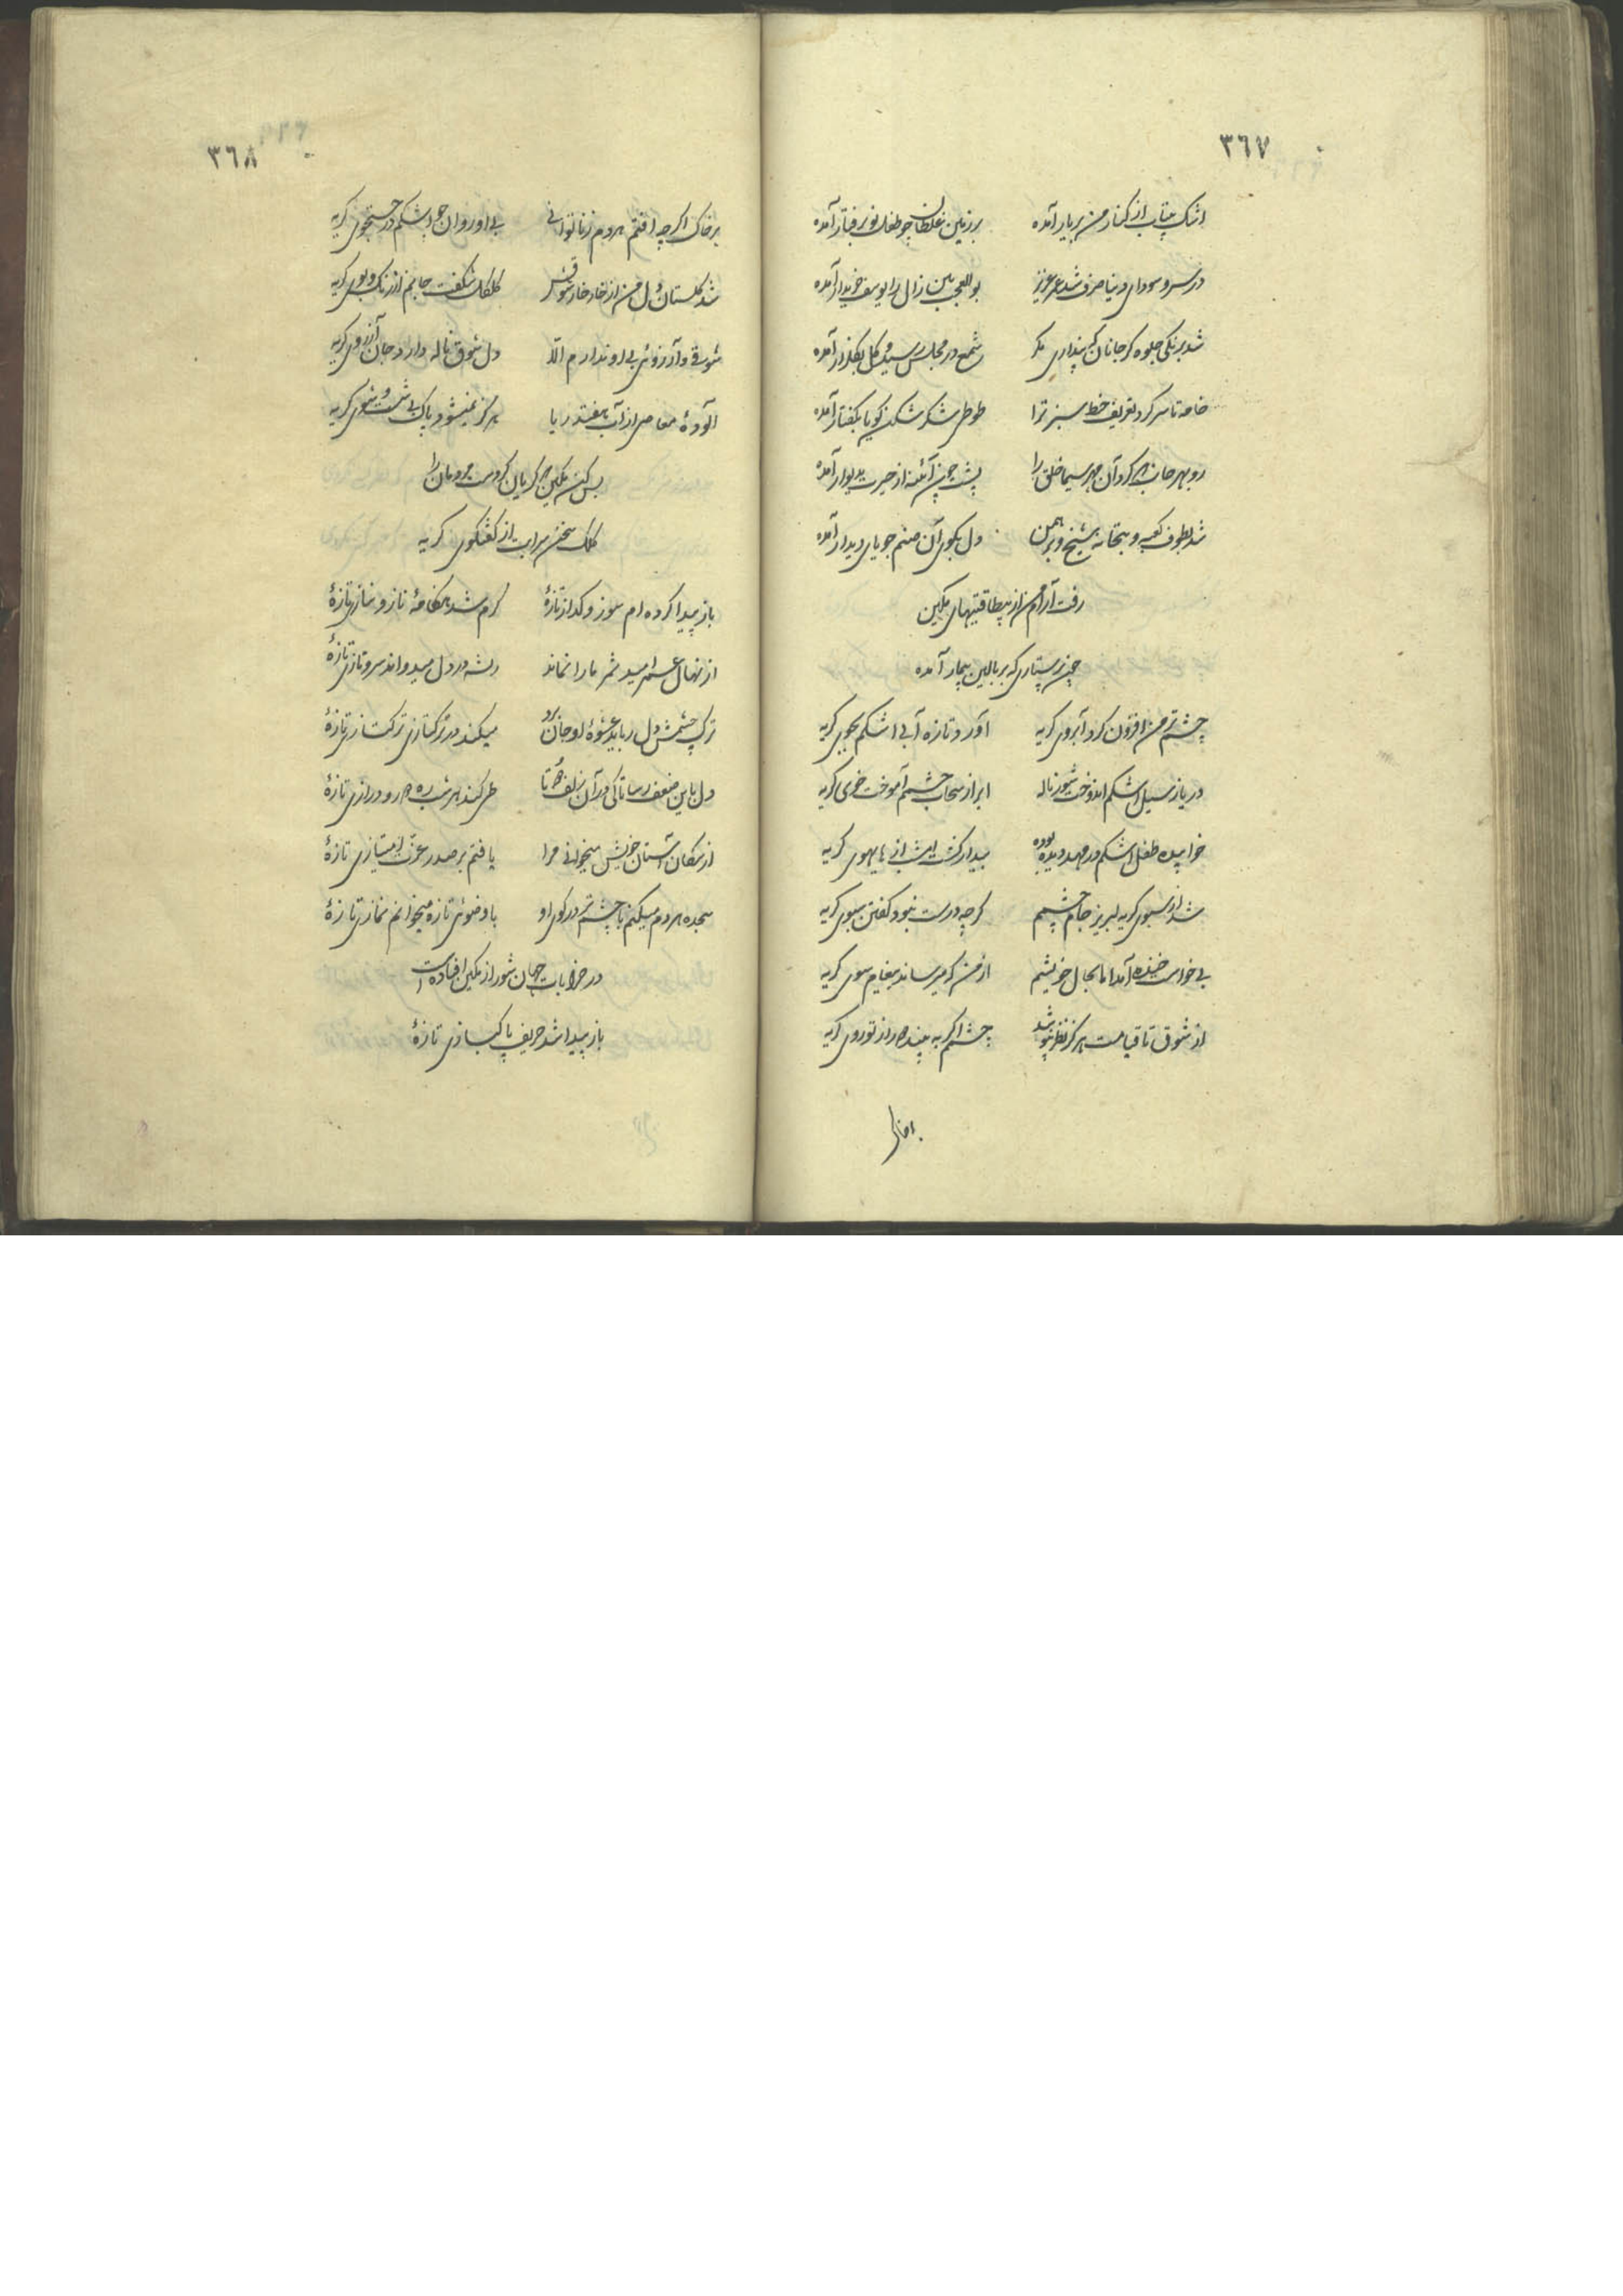 ٣٦٧
اشک بیتاب از کنار من بربار آمده بر زمین غلطان چو طفل نو برفتار آمده
در سر و سودای دنیا صرف شد عمر عزیز بوالعجب بین زال را یوسف خریدار آمده
شد برنگی جلوه گر جانان که پنداری مگر شمع در مجلس رسید و گل بگلزار آمده
خامه تا سر کرد تعریف خط سبز ترا طوطی شکر شکن گویا بگفتار آمده
رو بهر جانب که کرد آن مهر سیما خلق را پشت چون آئنه از حیرت بدیوار آمده
شد بطوف کعبه و بتخانه شیخ و برهمن دل بکوی آن صنم جویای دیدار آمده
رفت آرام من از بیطاقتیهای مکین
چون پرستاری که بر بالین بیمار آمده
چشم تر من افزون کرد آبروی گریه آورد تازه آبی اشکم بجوی گریه
دریا ز سیل اشکم اندوخت شور ناله ابر از سحاب چشمم آموخت خوی گریه
خوابیده طفل اشکم در مهد دیده بوده بیدار گشت امشب از هایهوی گریه
شد از سبوی گریه لبریز جام چشمم گرچه درست نبود گفتن سبوی گریه
بی خواست خنده آمد اما بحال خویشم از من که میرساند پیغام سوی گریه
از شوق تا قیامت هرگز نظر نپوشد چشمم اگر به بیند از تو روی گریه
٣٦٨
بر خاک اگرچه افتم هر دم ز ناتوانی بی او روان چو اشکم در جستجوی گریه
شد گلستان دل من از خار خار شوقش گل گل شگفت جانم از رنگ و بوی گریه
شوقی و آرزوئی بی او ندارم الا دل شوق ناله دارد جان آرزوی گریه
آلودهٔ معاصی از آب هفت دریا هرگز نمیشود پاک بی شست و شوی گریه
بس کن مکین که گریان کردست مردمان را
کلک سخن سرایت از گفتگوی گریه
باز پیدا کرده ام سوز و گداز تازهٔ گرم شد هنگامهٔ ناز و نیاز تازهٔ
از نهال عمر امید ثمر ما را نماند ریشه در دل میدواند سرو ناز تازهٔ
ترک چشمش دل رباید عشوهٔ او جان برد میکند در ترکتازی ترکتاز تازهٔ
دل باین ضعف رسا تا کی در آن زلف دوتا طی کند هر شب ره دور و دراز تازهٔ
از سگان آستان خویش میخوانی مرا یافتم بر صدر عزت امتیاز تازهٔ
سجده هر دم میکنم با چشم تر در کوی او با وضوئی تازه میخوانم نماز تازهٔ
در خرابات جهان شور از مکین افتاده است
باز پیدا شد حریف پاکباز تازهٔ